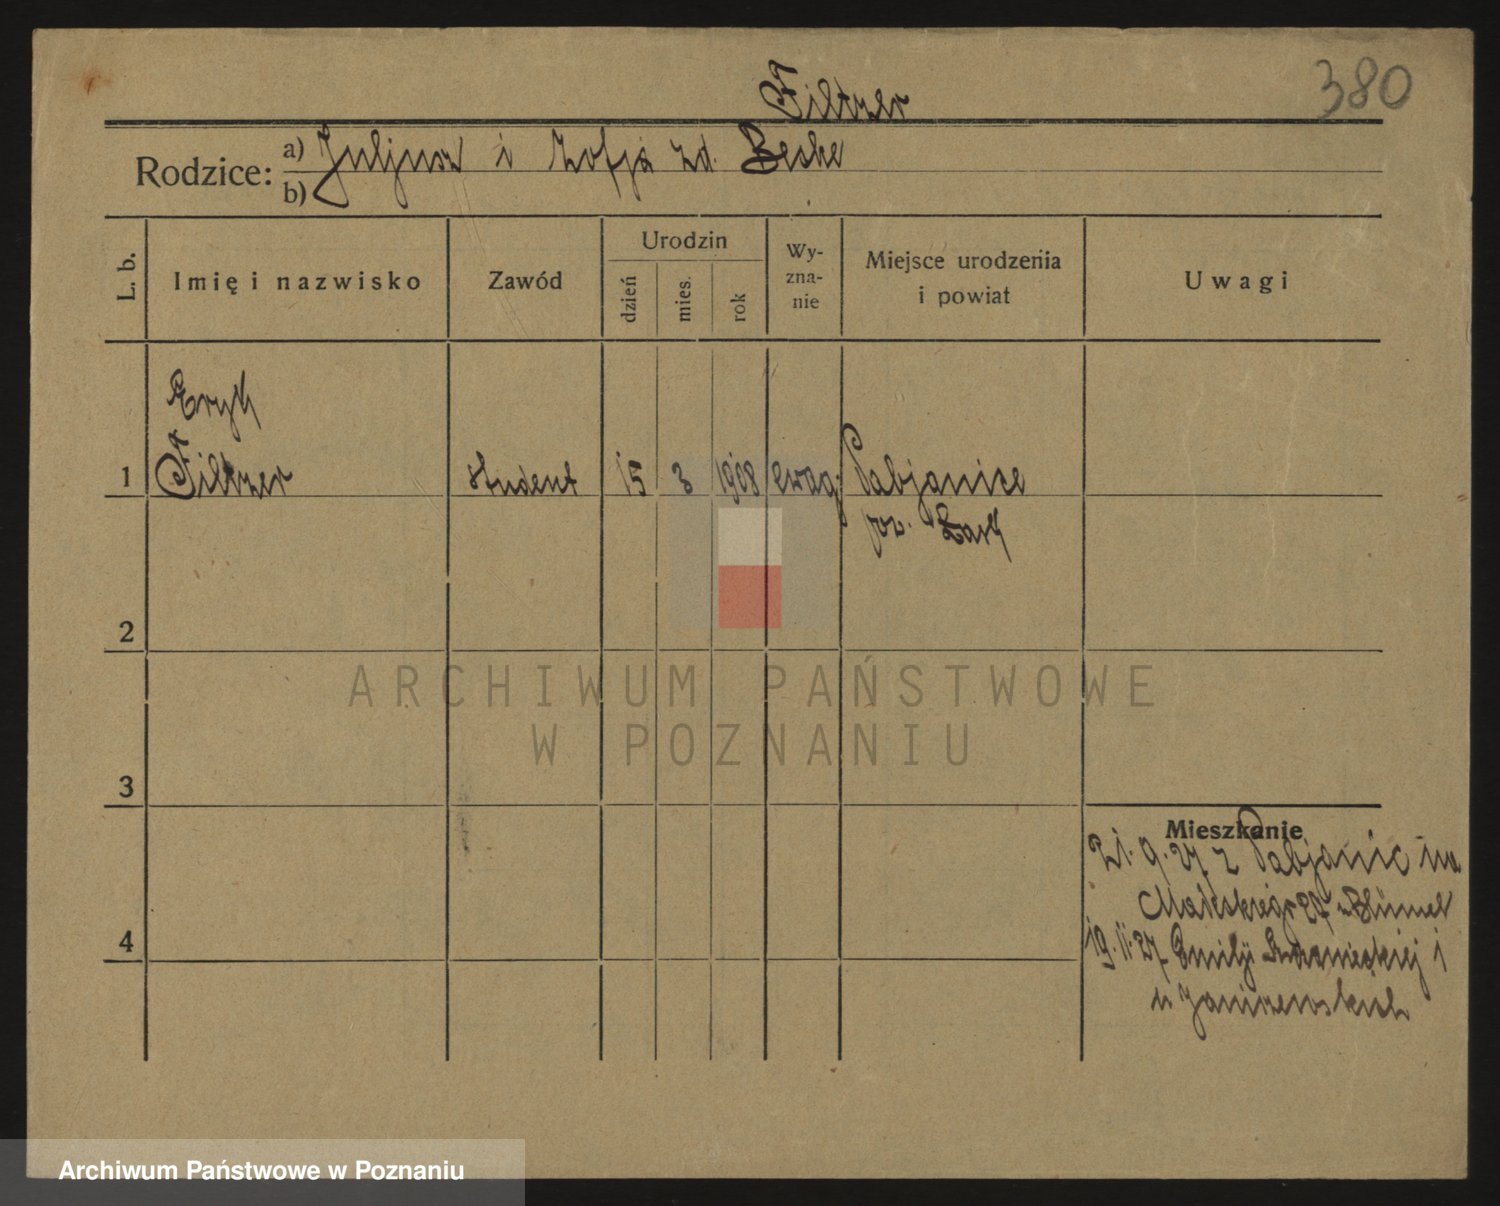 380
Filtzer
Rodzice: a) Juljusz i Zofja zd. Beske
b)
L. b.
Imię i nazwisko
Zawód
Urodzin
dzień
mies.
rok
Wy-
zna-
nie
Miejsce urodzenia
i powiat
Uwagi
Eryk
1 Filtzer student 15 3 1908 ewag. Pabjanice
pow. Łask
2
3
4
Mieszkanie
21. 9. 27 z Pabjanic na
27 u Blümel
19. 11. 27 Emilji Sczanieckiej 1
u Janiszewskich
ARCHIWUM PAŃSTWOWE
W POZNANIU
Archiwum Państwowe w Poznaniu